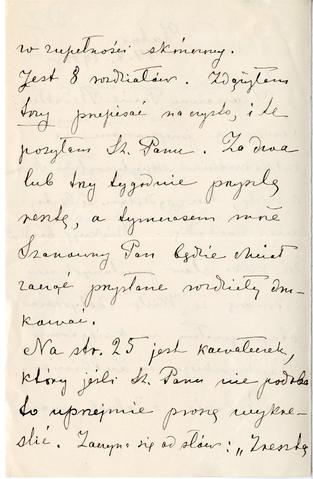 w zupełności skończony.
Jest 8 rozdziałów. Zdążyłem
trzy przepisać na czysto, i te
posyłam Sz. Panu. Za dwa
lub trzy tygodnie przyszlę
resztę, a tymczasem może
Szanowny Pan będzie chciał
zacząć przysłane rozdziały dru-
kować.
Na str. 25 jest kawałek,
który jeśli Sz. Panu nie podoba
to uprzejmie proszę wykre-
ślić. Zaczyna się od słów: „Zresztą